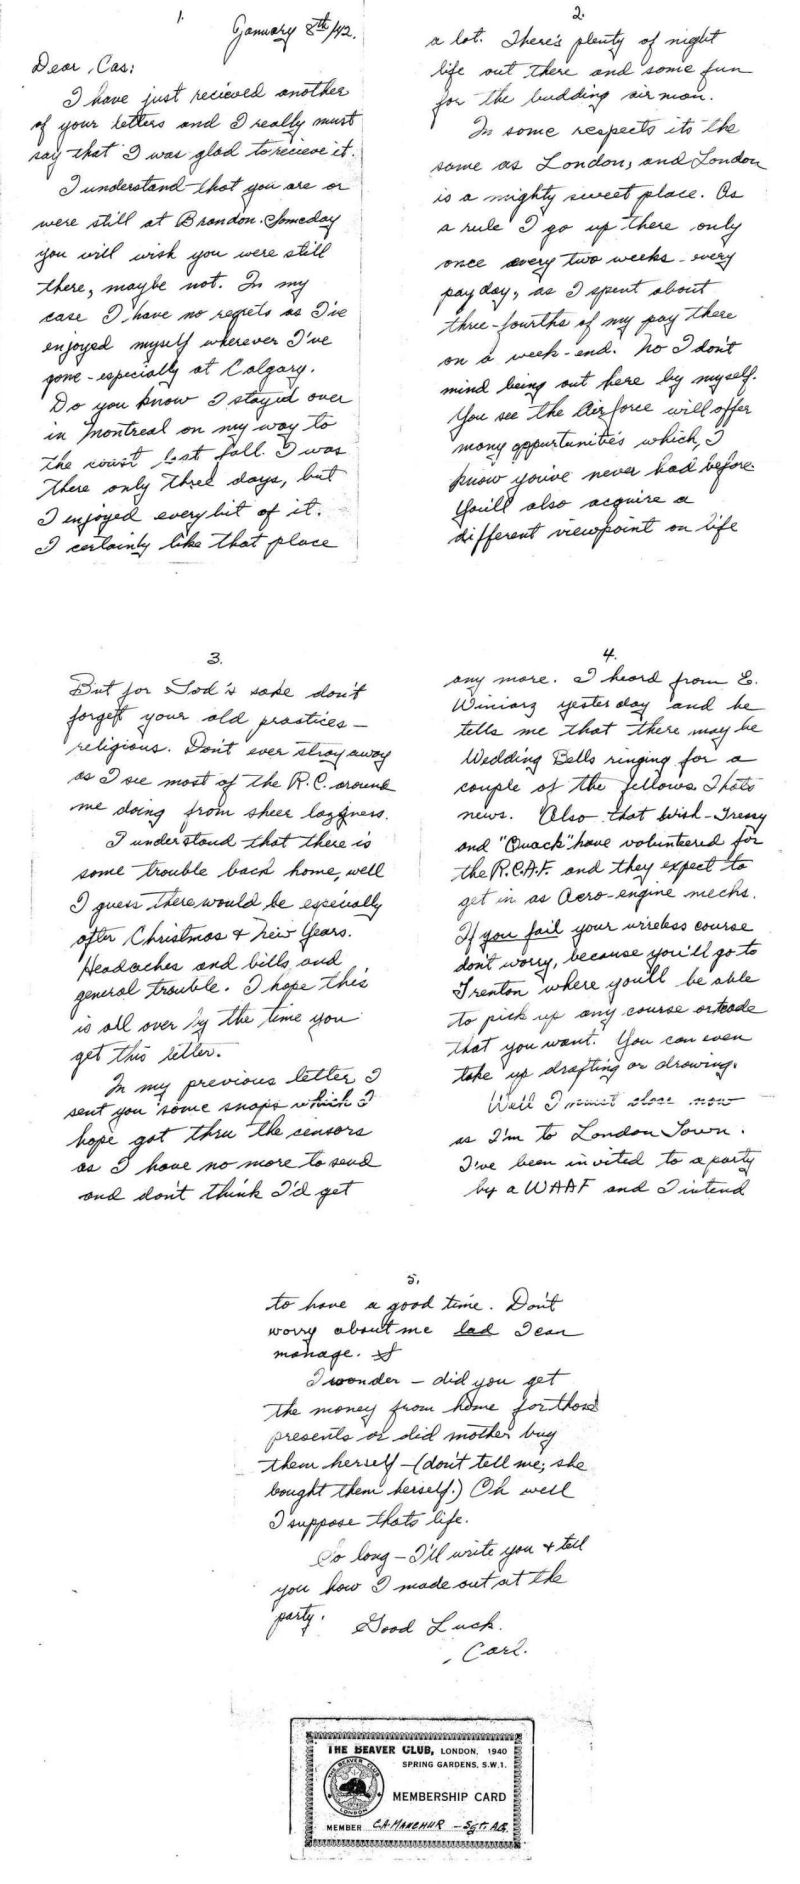 1.
January 8th/42.
Dear Cas:
I have just recieved another
of your letters and I really must
say that I was glad to recieve it.
I understand that you are or
were still at Brandon. Someday
you will wish you were still
there, maybe not. In my
case I have no regrets as I've
enjoyed myself wherever I've
gone - especially at Calgary.
Do you know I stayed over
in Montreal on my way to
the coast last fall. I was
there only three days, but
I enjoyed every bit of it.
I certainly like that place
2.
a lot. There's plenty of night
life out there and some fun
for the budding air man.
In some respects its the
same as London, and London
is a mighty sweet place. As
a rule I go up there only
once every two weeks - every
pay day, as I spent about
three-fourths of my pay there
on a week-end. No I don't
mind being out here by myself.
You see the Air force will offer
many oppurtunities which, I
know you've never had before.
You'll also acquire a
different viewpoint on life
3.
But for God's sake don't
forget your old practices -
religious. Don't ever stray away
as I see most of the R.C. around
me doing from sheer laziness.
I understand that there is
some trouble back home, well
I guess there would be especially
after Christmas & New Years.
Headaches and bills, and
general trouble. I hope this
is all over by the time you
get this letter.
In my previous letter I
sent you some snaps which I
hope got thru the censors
as I have no more to send
and don't think I'd get
4.
any more. I heard from E.
Winiarz yesterday and he
tells me that there may be
Wedding Bells ringing for a
couple of the fellows. Thats
news. Also that Wish-Tressy
and "Quack" have volunteered for
the R.C.A.F. and they expect to
get in as Aero-engine mechs.
If you fail your wireless course
don't worry, because you'll go to
Trenton where you'll be able
to pick up any course or trade
that you want. You can even
take up drafting or drawing.
Well I must close now
as I'm to London Town.
I've been invited to a party
by a WAAF and I intend
5.
to have a good time. Don't
worry about me lad I can
manage.
I wonder - did you get
the money from home for those
presents or did mother buy
them herself - (don't tell me; she
bought them herself.) Oh well
I suppose thats life.
So long - I'll write you & tell
you how I made out at the
party.
Good Luck.
Carl.
THE BEAVER CLUB, LONDON, 1940
SPRING GARDENS, S.W.1.
THE BEAVER CLUB
LONDON
MEMBERSHIP CARD
MEMBER C.A. MANCHUR - Sgt. A.G.